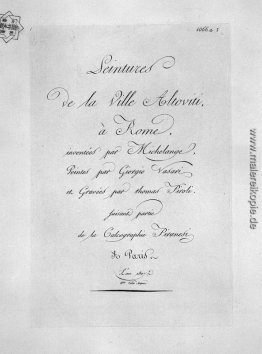 Peintures
de la Ville Altoviti,
à Rome,
inventées par Michelange,
Peintes par Giorgio Vasari
et Gravées par thomas Piroli,
faisant partie
de la Calcographie Piranesi
à Paris.
L'an 1807.
www.malereikopie.de